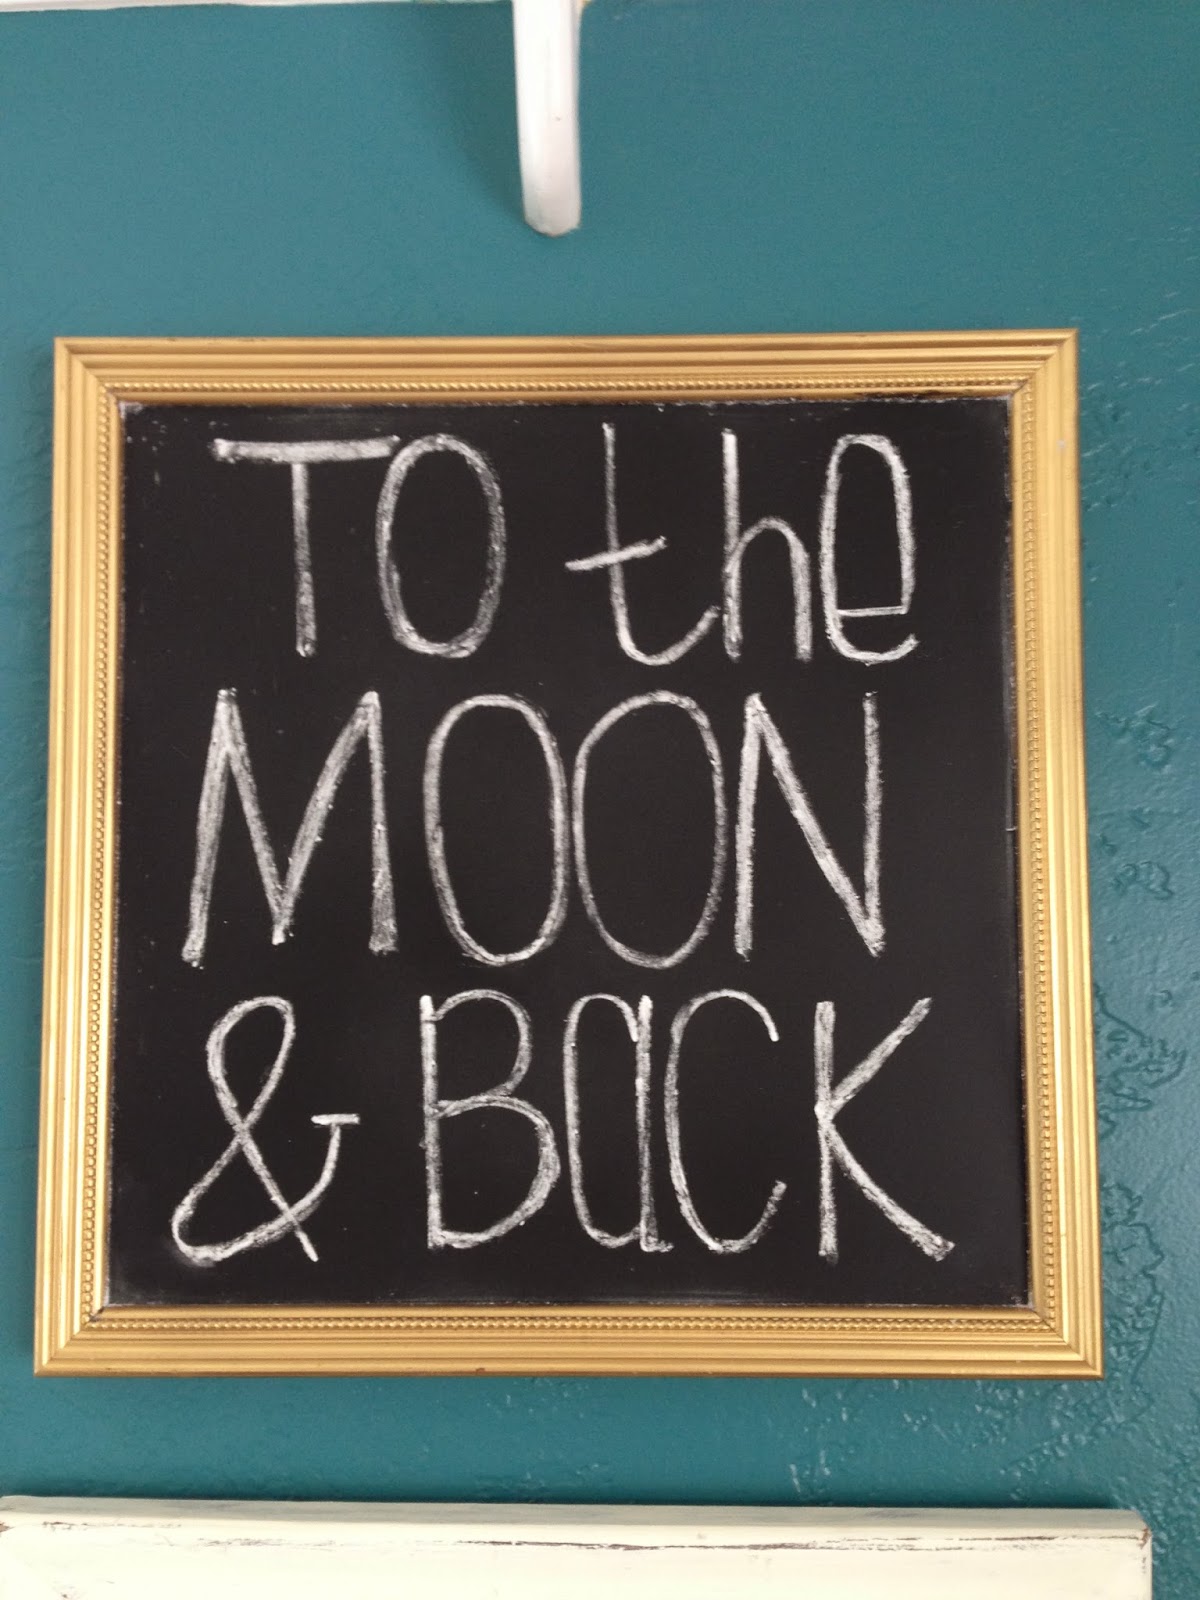 TO the
MOON
& BaCK